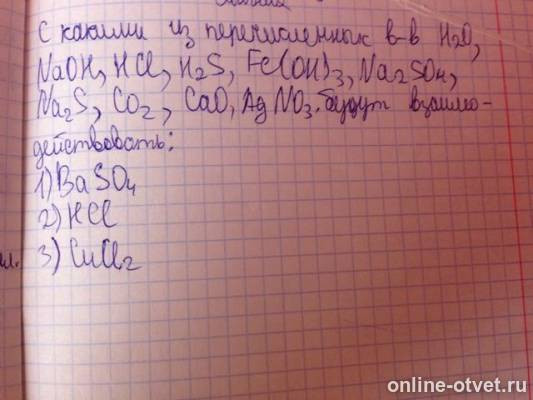 С какими из перечисленных в-в H₂O,
NaOH, HCl, H₂S, Fe(OH)₃, Na₂SO₄,
Na₂S, CO₂, CaO, AgNO₃ будут взаимо-
действовать:
1) BaSO₄
2) HCl
3) CuCl₂
online-otvet.ru